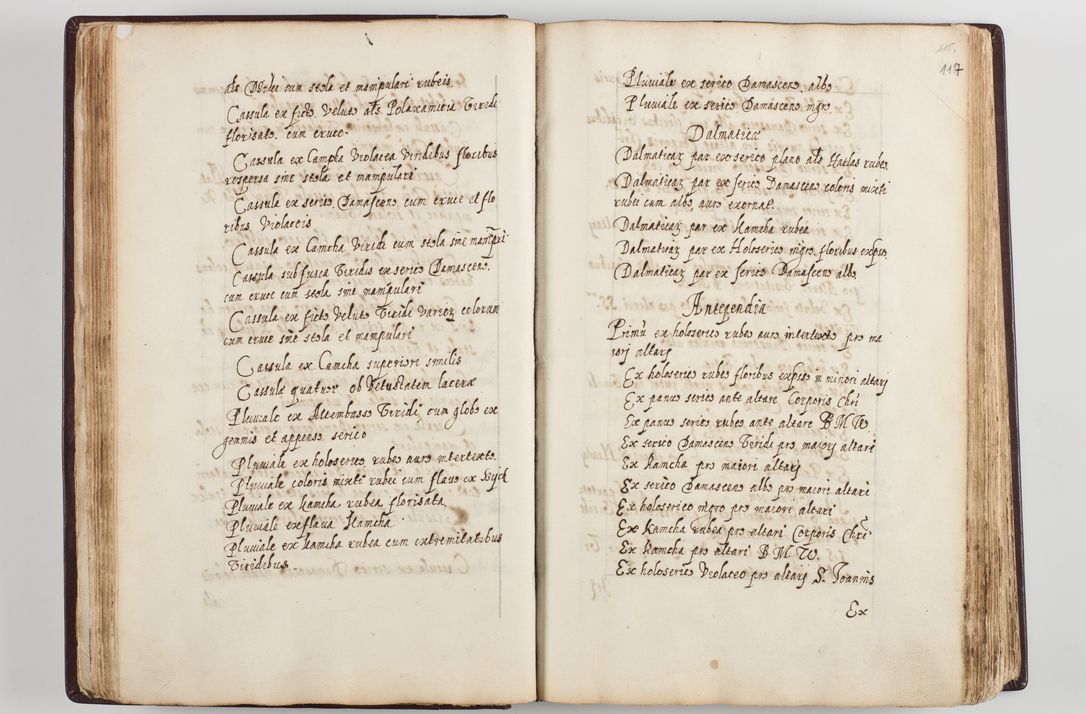 als Dÿelei cum stola et manipulari rubeis
Cassula ex ficto Veluto als Polaxamitu Viridi
florisato, cum cruce
Cassula ex Campha Violacea Viridibus floribus
respersa sine stola et manipulari
Cassula ex serico Damasceno, cum cruce et flo
ribus Violaceis
Cassula ex Camcha Viridi cum stola sine manipri
Cassula subfusca Viridis ex serico Damasceno,
cum cruce cum stola sine manipulari
Cassula ex ficto Veluto Viridi varioꝝ colorum
cum cruce sine stola et manipulari
Cassula ex Camcha superiori similis
Cassulæ quatuor ob Vetustatem laceræ
Pluviale ex Altembasso Viridi, cum globo ex
gemmis et appenso serico
Pluviale ex holoserico rubeo auro intertexto.
Pluviale coloris mixti rubei cum flavo ex
Pluviale ex kamcha rubea florisata
Pluviale ex flava Kamcha
Pluviale ex kamcha rubea cum extremitatibus
Viridibus.
115.
117
Pluviale ex serico Damasceno albo
Pluviale ex serico Damasceno nigro.
Dalmaticæ
Dalmaticaꝝ par ex serico plano als Hatlas rubeo
Dalmaticaꝝ par ex serico Damasceno coloris mixti
rubei cum albo, auro exornat.
Dalmaticaꝝ par ex Kamcha rubea
Dalmaticaꝝ par ex Holoserico nigro, floribus expso
Dalmaticaꝝ par ex serico Damasceno albo
Antependia
Primū ex holoserico rubeo auro intertexto pro ma
iori altarj
Ex holoserico rubeo floribus expso in minori altarj
Ex panno serico ante altare Corporis Chri
Ex panno serico rubeo ante altare B M V.
Ex serico Damasceno Viridi pro maiorj altari
Ex Kamcha pro maiore altarj
Ex serico Damasceno albo pro maiori altari
Ex holoserico nigro pro maiore altari
Ex Kamcha rubea pro altari Corporis Chri
Ex Kamcha pro altari B M V.
Ex holoserico Violaceo pro altarj S. Joannis
Ex